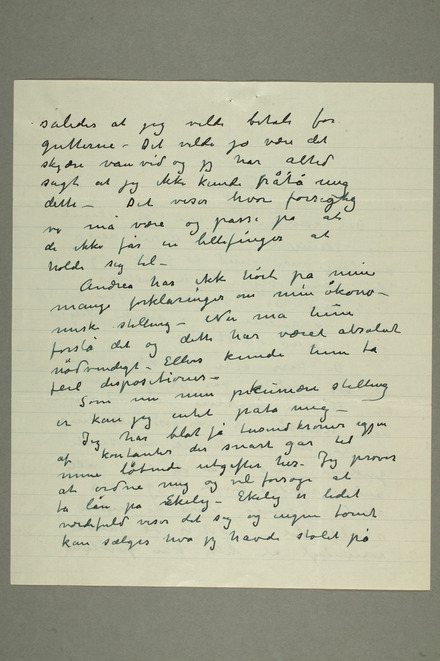 således at jeg vilde betale for
gutterne – Det vilde jo være det
skjære vanvid og jeg har altid
sagt at jeg ikke kunde påtå mig
dette – Det viser hvor forsigtig
vi må være og passe på at
de ikke får en lillefinger at
holde sig til –
Andrea har ikke hørt på mine
mange forklaringer om min økono–
miske stilling – Nu må hun
forstå det og dette har været absolut
nødvendigt – Ellers kunde hun ta
feil dispositioner –
Som nu min pekuniære stilling
er kan jeg intet påta mig –
Jeg har blot få tusind kroner igjen
af kontanter der snart går til
mine løbende utgifter her. Jeg prøver
at ordne mig og vil forsøge at
ta lån på Ekely – Ekely er lidet
værdifuld viser det sig og ingen tomt
kan sælges hva jeg havde stolet på